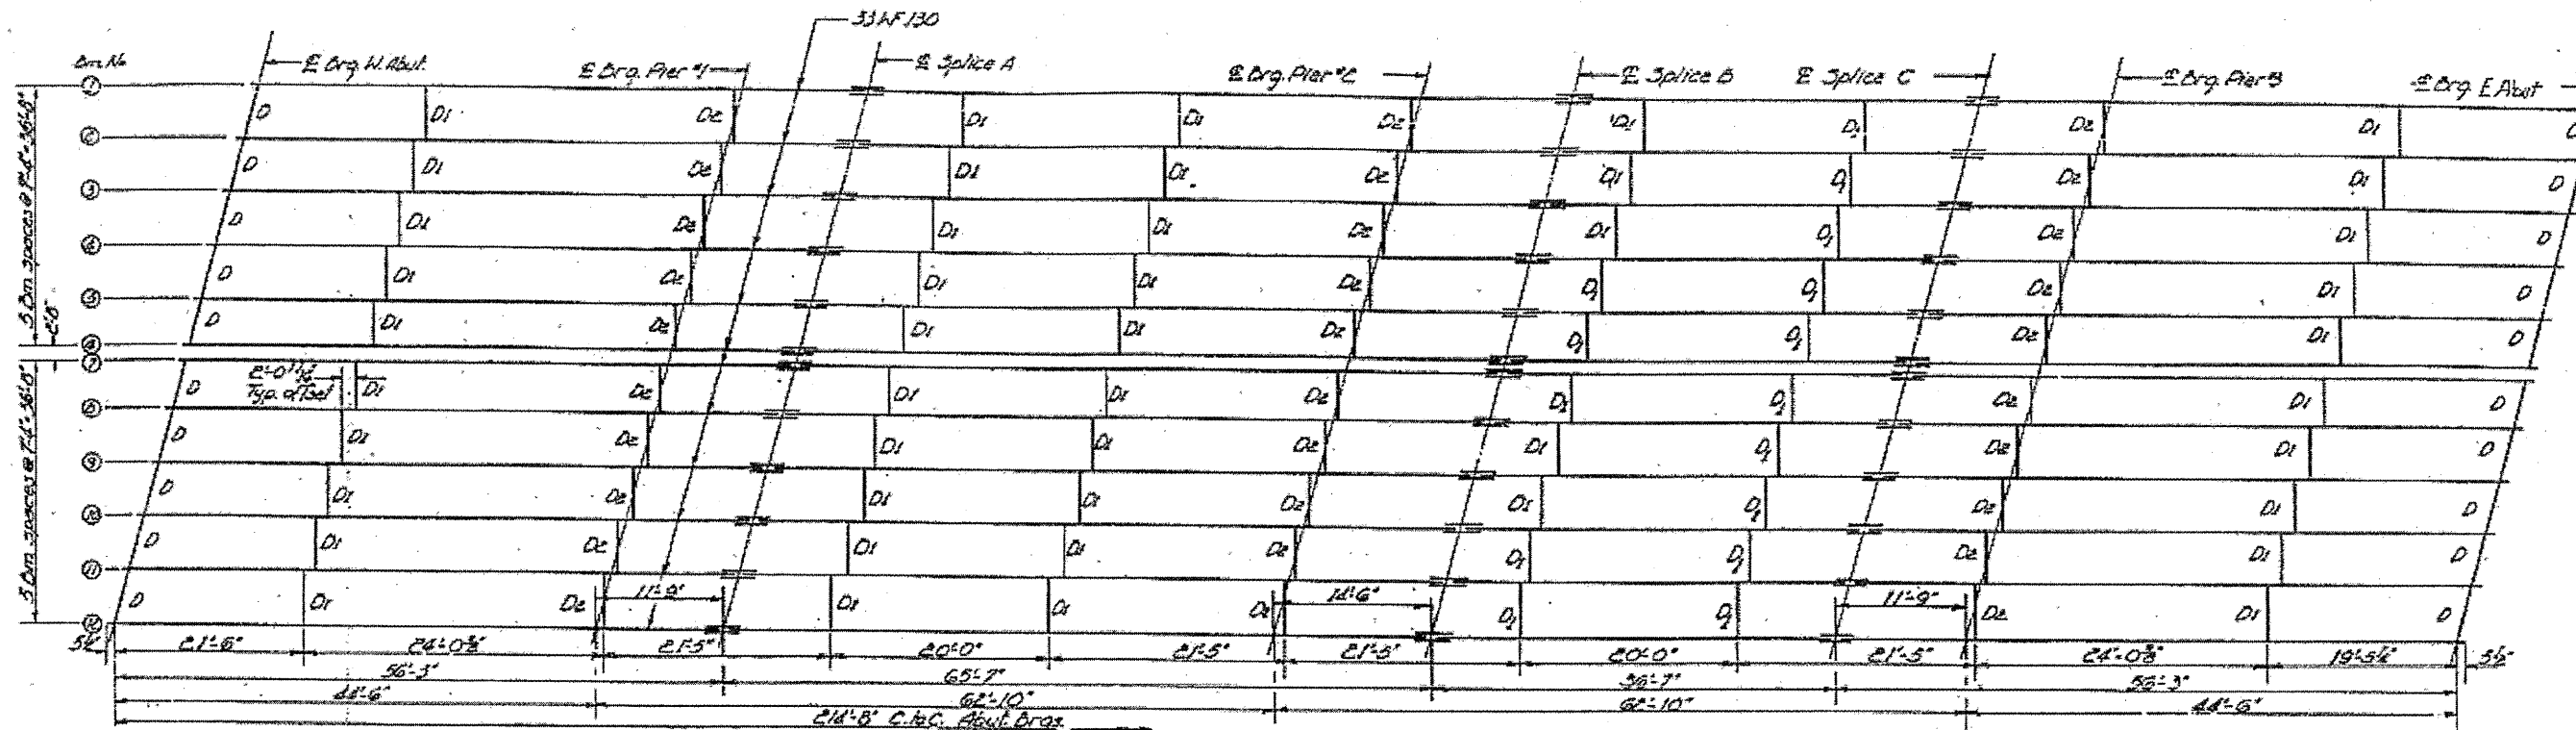 33WF130
Bm. No.
℄ Brg. W. Abut.
℄ Brg. Pier #1
℄ Splice A
℄ Brg. Pier #2
℄ Splice B
℄ Splice C
℄ Brg. Pier #3
℄ Brg. E. Abut
1
D D1 D2 D1 D1 D2 D1 D1 D2 D1 D
2
D D1 D2 D1 D1 D2 D1 D1 D2 D1 D
3
D D1 D2 D1 D1 D2 D1 D1 D2 D1 D
4
D D1 D2 D1 D1 D2 D1 D1 D2 D1 D
5
D D1 D2 D1 D1 D2 D1 D1 D2 D1 D
6
7
D D1 D2 D1 D1 D2 D1 D1 D2 D1 D
Typ. offset
8
D D1 D2 D1 D1 D2 D1 D1 D2 D1 D
9
D D1 D2 D1 D1 D2 D1 D1 D2 D1 D
10
D D1 D2 D1 D1 D2 D1 D1 D2 D1 D
11
D D1 D2 D1 D1 D2 D1 D1 D2 D1 D
12
5 Bm. spaces @ 7'-4" = 36'-8"
2'-8"
5 Bm. spaces @ 7'-4" = 36'-8"
11'-9" 14'-6" 11'-9"
5½" 21'-6" 24'-0⅜" 21'-5" 20'-0" 21'-5" 21'-5" 20'-0" 21'-5" 24'-0⅜" 19'-5¼" 5½"
56'-3" 65'-7" 36'-7" 56'-3"
44'-6" 62'-10" 62'-10" 44'-6"
214'-8" C. to C. Abut. Brgs.